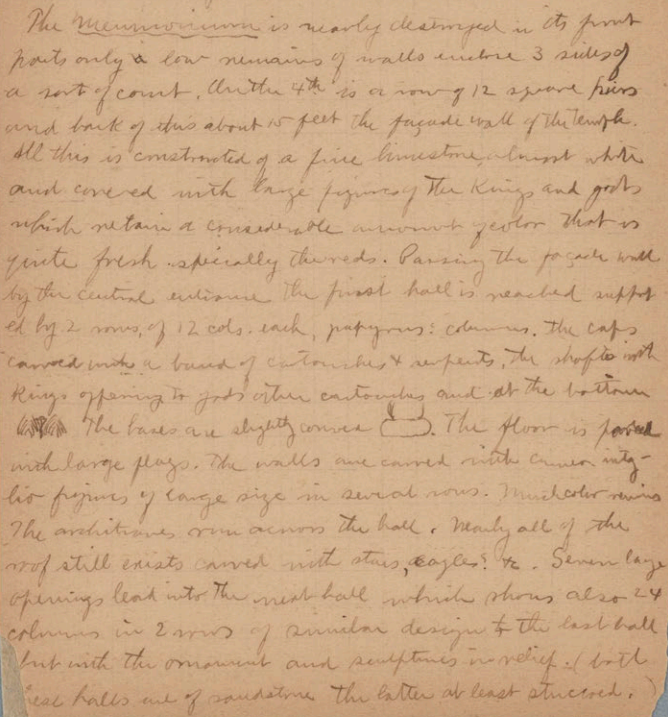 The Memnonium is nearly destroyed in its front
parts only a low remains of walls enclose 3 sides of
a sort of court. On the 4th is a row of 12 square piers
and back of this about 15 feet the façade wall of the temple.
All this is constructed of a fine limestone almost white
and covered with large figures of the Kings and gods
which retain a considerable amount of color that is
quite fresh specially the reds. Passing the façade wall
by the central entrance the first hall is reached support
ed by 2 rows, of 12 cols. each, papyrus: columns. the caps
carved with a band of cartouches & serpents, the shafts with
Kings offering to gods other cartouches and at the bottom
The bases are slightly convex. The floor is paved
with large flags. The walls are carved with intag-
lio figures of large size in several rows. Much color remains
The architraves run across the hall. Nearly all of the
roof still exists carved with stars, eagles? &c. Seven large
openings lead into the next hall which shows also 24
columns in 2 rows of similar design to the last hall
but with the ornament and sculptures in relief. (both
these halls are of sandstone the latter at least stuccoed.)